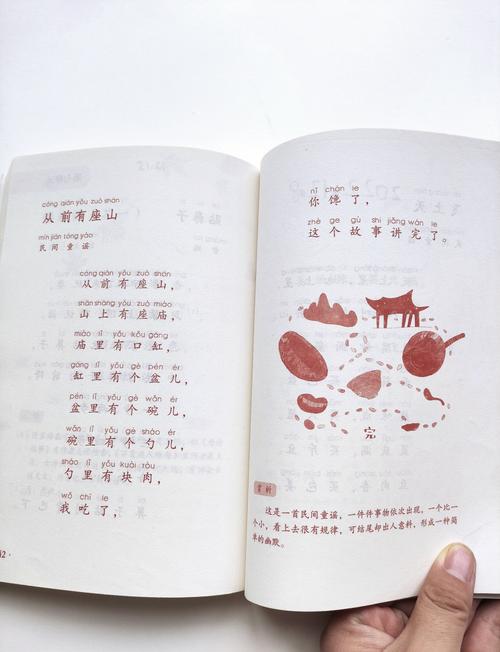 cóng qián yǒu zuò shān
从前有座山
mín jiān tóng yáo
民间童谣
cóng qián yǒu zuò shān
从前有座山，
shān shàng yǒu zuò miào
山上有座庙，
miào lǐ yǒu kǒu gāng
庙里有口缸，
gāng lǐ yǒu gè pén ér
缸里有个盆儿，
pén lǐ yǒu gè wǎn ér
盆里有个碗儿，
wǎn lǐ yǒu gè sháo ér
碗里有个勺儿，
sháo lǐ yǒu kuài ròu
勺里有块肉，
wǒ chī le
我吃了，
nǐ chán le
你馋了，
zhè ge gù shi jiǎng wán le
这个故事讲完了。
完
赏析
这是一首民间童谣，一件件事物依次出现，一个比一
个小，看上去很有规律，可结尾却出人意料，形成一种简
单的幽默。